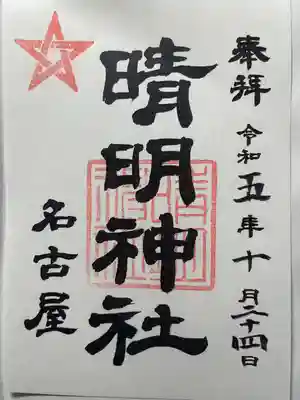 奉拝
令和五年十月二十四日
晴明神社
名古屋